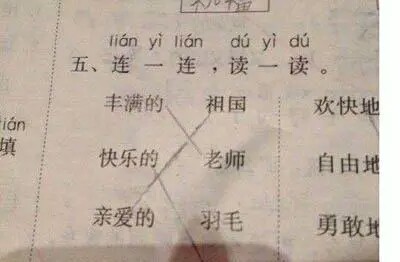 祝福
lián yì lián dú yì dú
五、连一连，读一读。
丰满的 祖国 欢快地
tián
填
快乐的 老师 自由地
亲爱的 羽毛 勇敢地